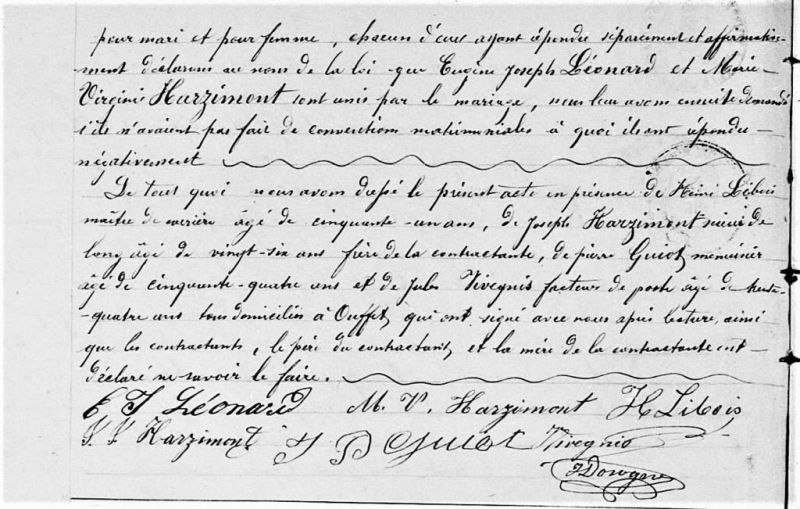 pour mari et pour femme, chacun d'eux ayant répondu séparément et affirmative-
ment déclarons au nom de la loi que Eugène Joseph Léonard et Marie-
Virginie Harzimont sont unis par le mariage, nous leur avons ensuite demandé
s'ils n'avaient pas fait de conventions matrimoniales à quoi ils ont répondu -
négativement
De tout quoi nous avons dressé le présent acte en présence de Henri Libois
maître de carrière âgé de cinquante-un ans, de Joseph Harzimont scieur de
long âgé de vingt-six ans frère de la contractante, de pierre Guiot menuisier
âgé de cinquante-quatre ans et de Jules Vivegnis facteur de poste âgé de trente-
-quatre ans tous domiciliés à Ouffet, qui ont signé avec nous après lecture, ainsi
que les contractants, le père du contractant et la mère de la contractante ont -
déclaré ne savoir le faire.
E J Léonard M. V. Harzimont H Libois
J. J. Harzimont Guiot Vivegnis